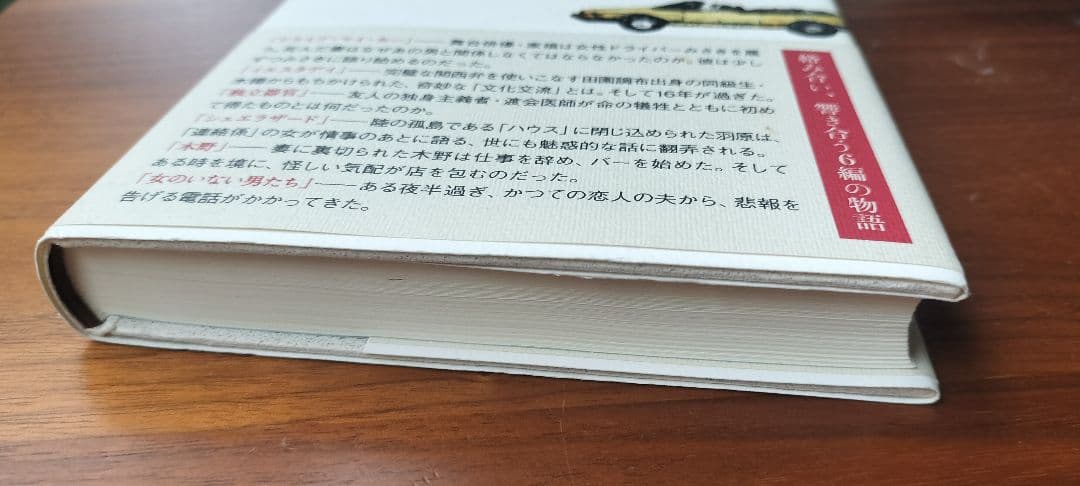 「ドライブ・マイ・カー」——舞台俳優・家福は女性ドライバーみさきを雇
う。死んだ妻はなぜあの男と関係しなくてはならなかったのか。彼は少し
ずつみさきに語り始めるのだった。
「イエスタデイ」——完璧な関西弁を使いこなす田園調布出身の同級生・
木樽からもちかけられた、奇妙な「文化交流」とは。そして16年が過ぎた。
「独立器官」——友人の独身主義者・渡会医師が命の犠牲とともに初め
て得たものとは何だったのか。
「シェエラザード」——陸の孤島である「ハウス」に閉じ込められた羽原は、
「連絡係」の女が情事のあとに語る、世にも魅惑的な話に翻弄される。
「木野」——妻に裏切られた木野は仕事を辞め、バーを始めた。そして
ある時を境に、怪しい気配が店を包むのだった。
「女のいない男たち」——ある夜半過ぎ、かつての恋人の夫から、悲報を
告げる電話がかかってきた。
絡み合い、響き合う6編の物語